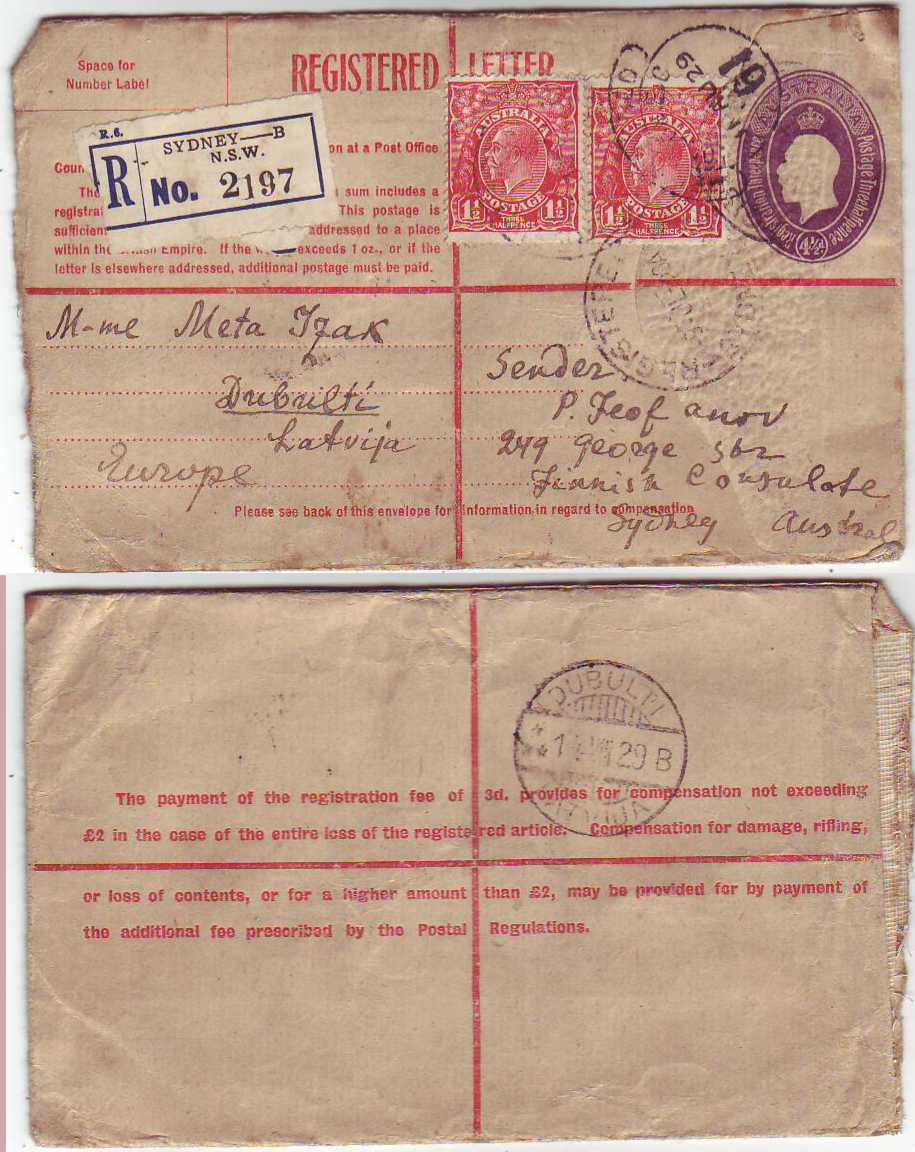 Space for
Number Label
REGISTERED LETTER
R.6.
SYDNEY—B
N.S.W.
R No. 2197
on at a Post Office
Coun
The sum includes a
registrat This postage is
sufficien addressed to a place
within the British Empire. If the exceeds 1 oz., or if the
letter is elsewhere addressed, additional postage must be paid.
AUSTRALIA
1½ 1½
POSTAGE
THREE
HALFPENCE
AUSTRALIA
1½ 1½
POSTAGE
THREE
HALFPENCE
AUSTRALIA
Postage Three halfpence
Registration Threepence
4½D
19
29
REGISTERED
M-me Meta Izak
Dubulti
Latvija
Europe
Sender
P. Feofanov
249 George str
Finnish Consulate
Sydney Austral
Please see back of this envelope for information in regard to compensation
DUBULTI
29 B
LATVIJA
The payment of the registration fee of 3d. provides for compensation not exceeding
£2 in the case of the entire loss of the registered article. Compensation for damage, rifling,
or loss of contents, or for a higher amount than £2, may be provided for by payment of
the additional fee prescribed by the Postal Regulations.